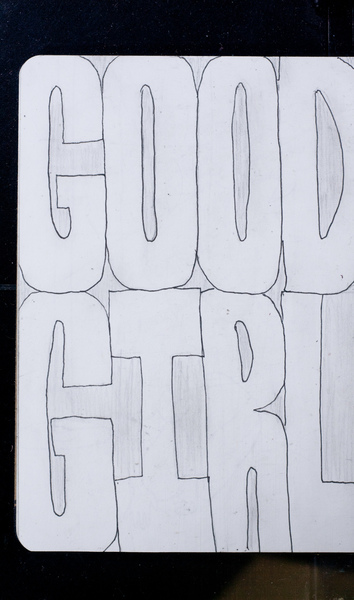 GOOD
GIRL